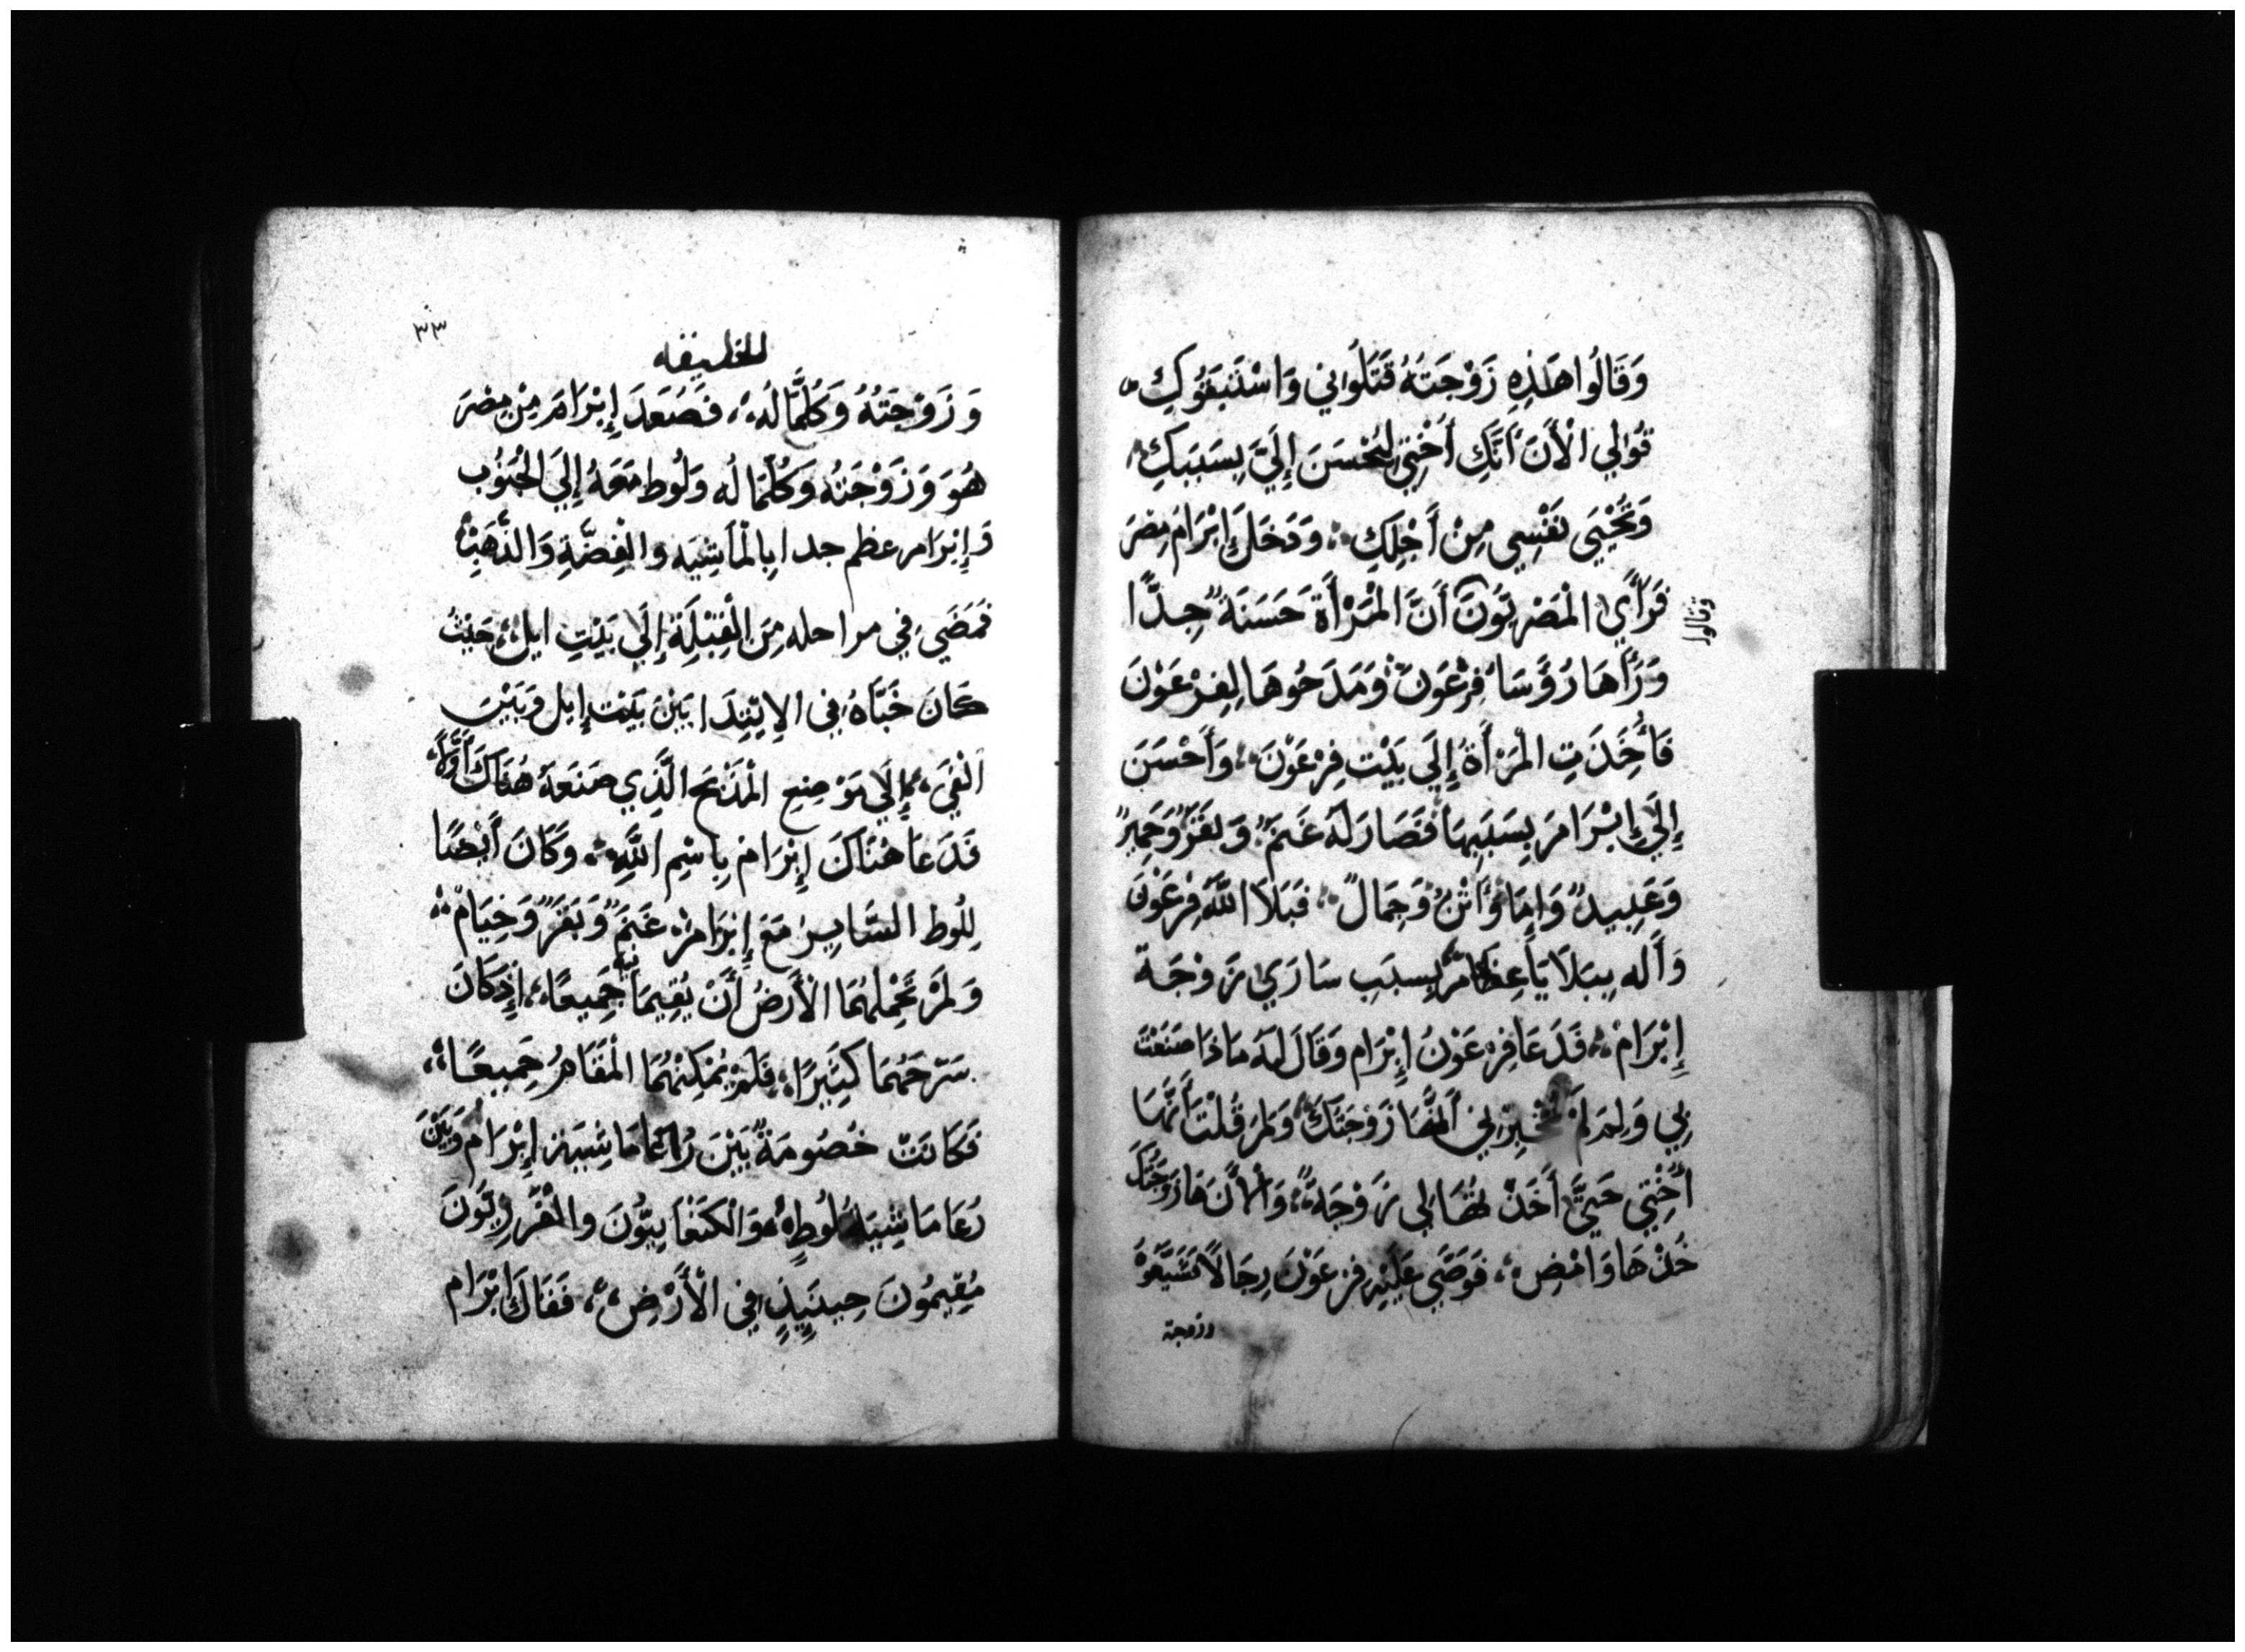 وَقَالُوا هَذِهِ زَوْجَتُهُ قَتَلُوانِي وَاسْتَبَقَوْكِ
قُوالِي الْأَنَ أَنَّكِ أُخْتِي لِتُحْسَنَ إِلَيَّ بِسَبَبَكِ
وَتَحْيَى نَفْسِي مِنْ أَجْلِكِ وَدَخَلَ إِبْرَامَ مِصْرَ
فَرَأَي الْمَصْرِيُونَ أَنَّ الْمَرْأَةَ حَسَنَةٌ جِدًّا
وقالوا
وَرَأَهَا رُؤَسَاُ فِرْعَوْنَ وَمَدَحُوهَا لِفِرْعَوْنَ
فَأُخِذَتِ الْمَرْأَةُ إِلَي بَيْتِ فِرْعَوْنَ وَأَحْسَنَ
إِلَيَ إِبْرَامَ بِسَبَبِهَا فَصَارَ لَهُ غَنَمٌ وَبَقَرٌ وَحَمِيرٌ
وَعَبِيدٌ وَإِمَاءٌ وَأُتْنٌ وَجِمَالٌ فَبَلَا اللَّهُ فِرْعَوْنَ
وَأَله بِبَلَايَا عِظَامٍ بِسبَبِ سَارَيْ زَوْجَة
إِبْرَامْ فَدَعَا فِرْعَوْنُ إِبْرَام وَقَالَ لَهُ مَاذَا صَنَعْتَ
بِي وَلِمَ لَمْ تُخْبِرْنِي أَنَّهَا زَوْجَتَكَ وَلِمَ قُلْتَ أَنَّهَا
أُخْتِي حَتَّيَ أَخَذْتُهَا لِي زَوْجَةً وَالْأَنَ هَا زَوْجَتَكَ
خُذْهَا وَامْضِ فَوَصَّي عَلَيْهِ فِرْعَوْنَ رِجَالًا فَشَيَّعُوْهُ
وزوجته
٣٣
للخليفه
وَزَوْجَتُهُ وَكُلَّمَا لَهُ فَصَعَدَ إِبْرَامَ مِنْ مِصْرَ
هُوَ وَزَوْجَتُهُ وَكُلَّمَا لُه وَلُوط مَعَهُ إِلَيَ الْجُنُوُبِ
وَإِبْرَام عظم جدا بِالْمَاشِيَه والفِضَّةِ وَالذَّهَبِ
فَمَضَيَ فِي مراحله مِنَ الْقِبْلَةِ إِلَي بَيْتِ ايل حَيْثُ
كَانَ خَبَّاهُ فِي الإِبْتِدَا بَيْنَ بَيْت إيل وَبَيْنَ
الْغَيَ إِلَي مَوْضِعِ الْمَذْبَحِ الَّذِي صَنَعَهُ هُنَاكَ أَوَّلًا
فَدَعَا هُنَاكَ إِبْرَامْ بِاسْمِ اللَّهِ وَكَانَ أَيْضًا
لِلُوط السَّايِرِ مَعَ إِبْرَامْ غَنَمٌ وَبَقَرٌ وَخِيَامْ
وَلَمْ تَحْمِلْهُمَا الْأَرْضُ أَنْ يُقِيمَا جَمِيعًا إِذْ كَانَ
سَرْحَهُمَا كَثِيرًا فَلَمْ يُمْكِنْهُمَا الْمُقَامُ جَمِيعًا
فَكَانَتْ خُصُومَةٌ بَيْنَ رُعَاةِ مَاشِيَةِ إِبْرَام وَبَيْنَ
رُعَا مَاشِيَة لُوطٍ وَالْكَنْعَانِيُّونَ والْفَرِزِيُّونَ
مُقِيمُونَ حِينَيِذٍ فِي الْأَرْضِ فَقَالَ إِبْرَام